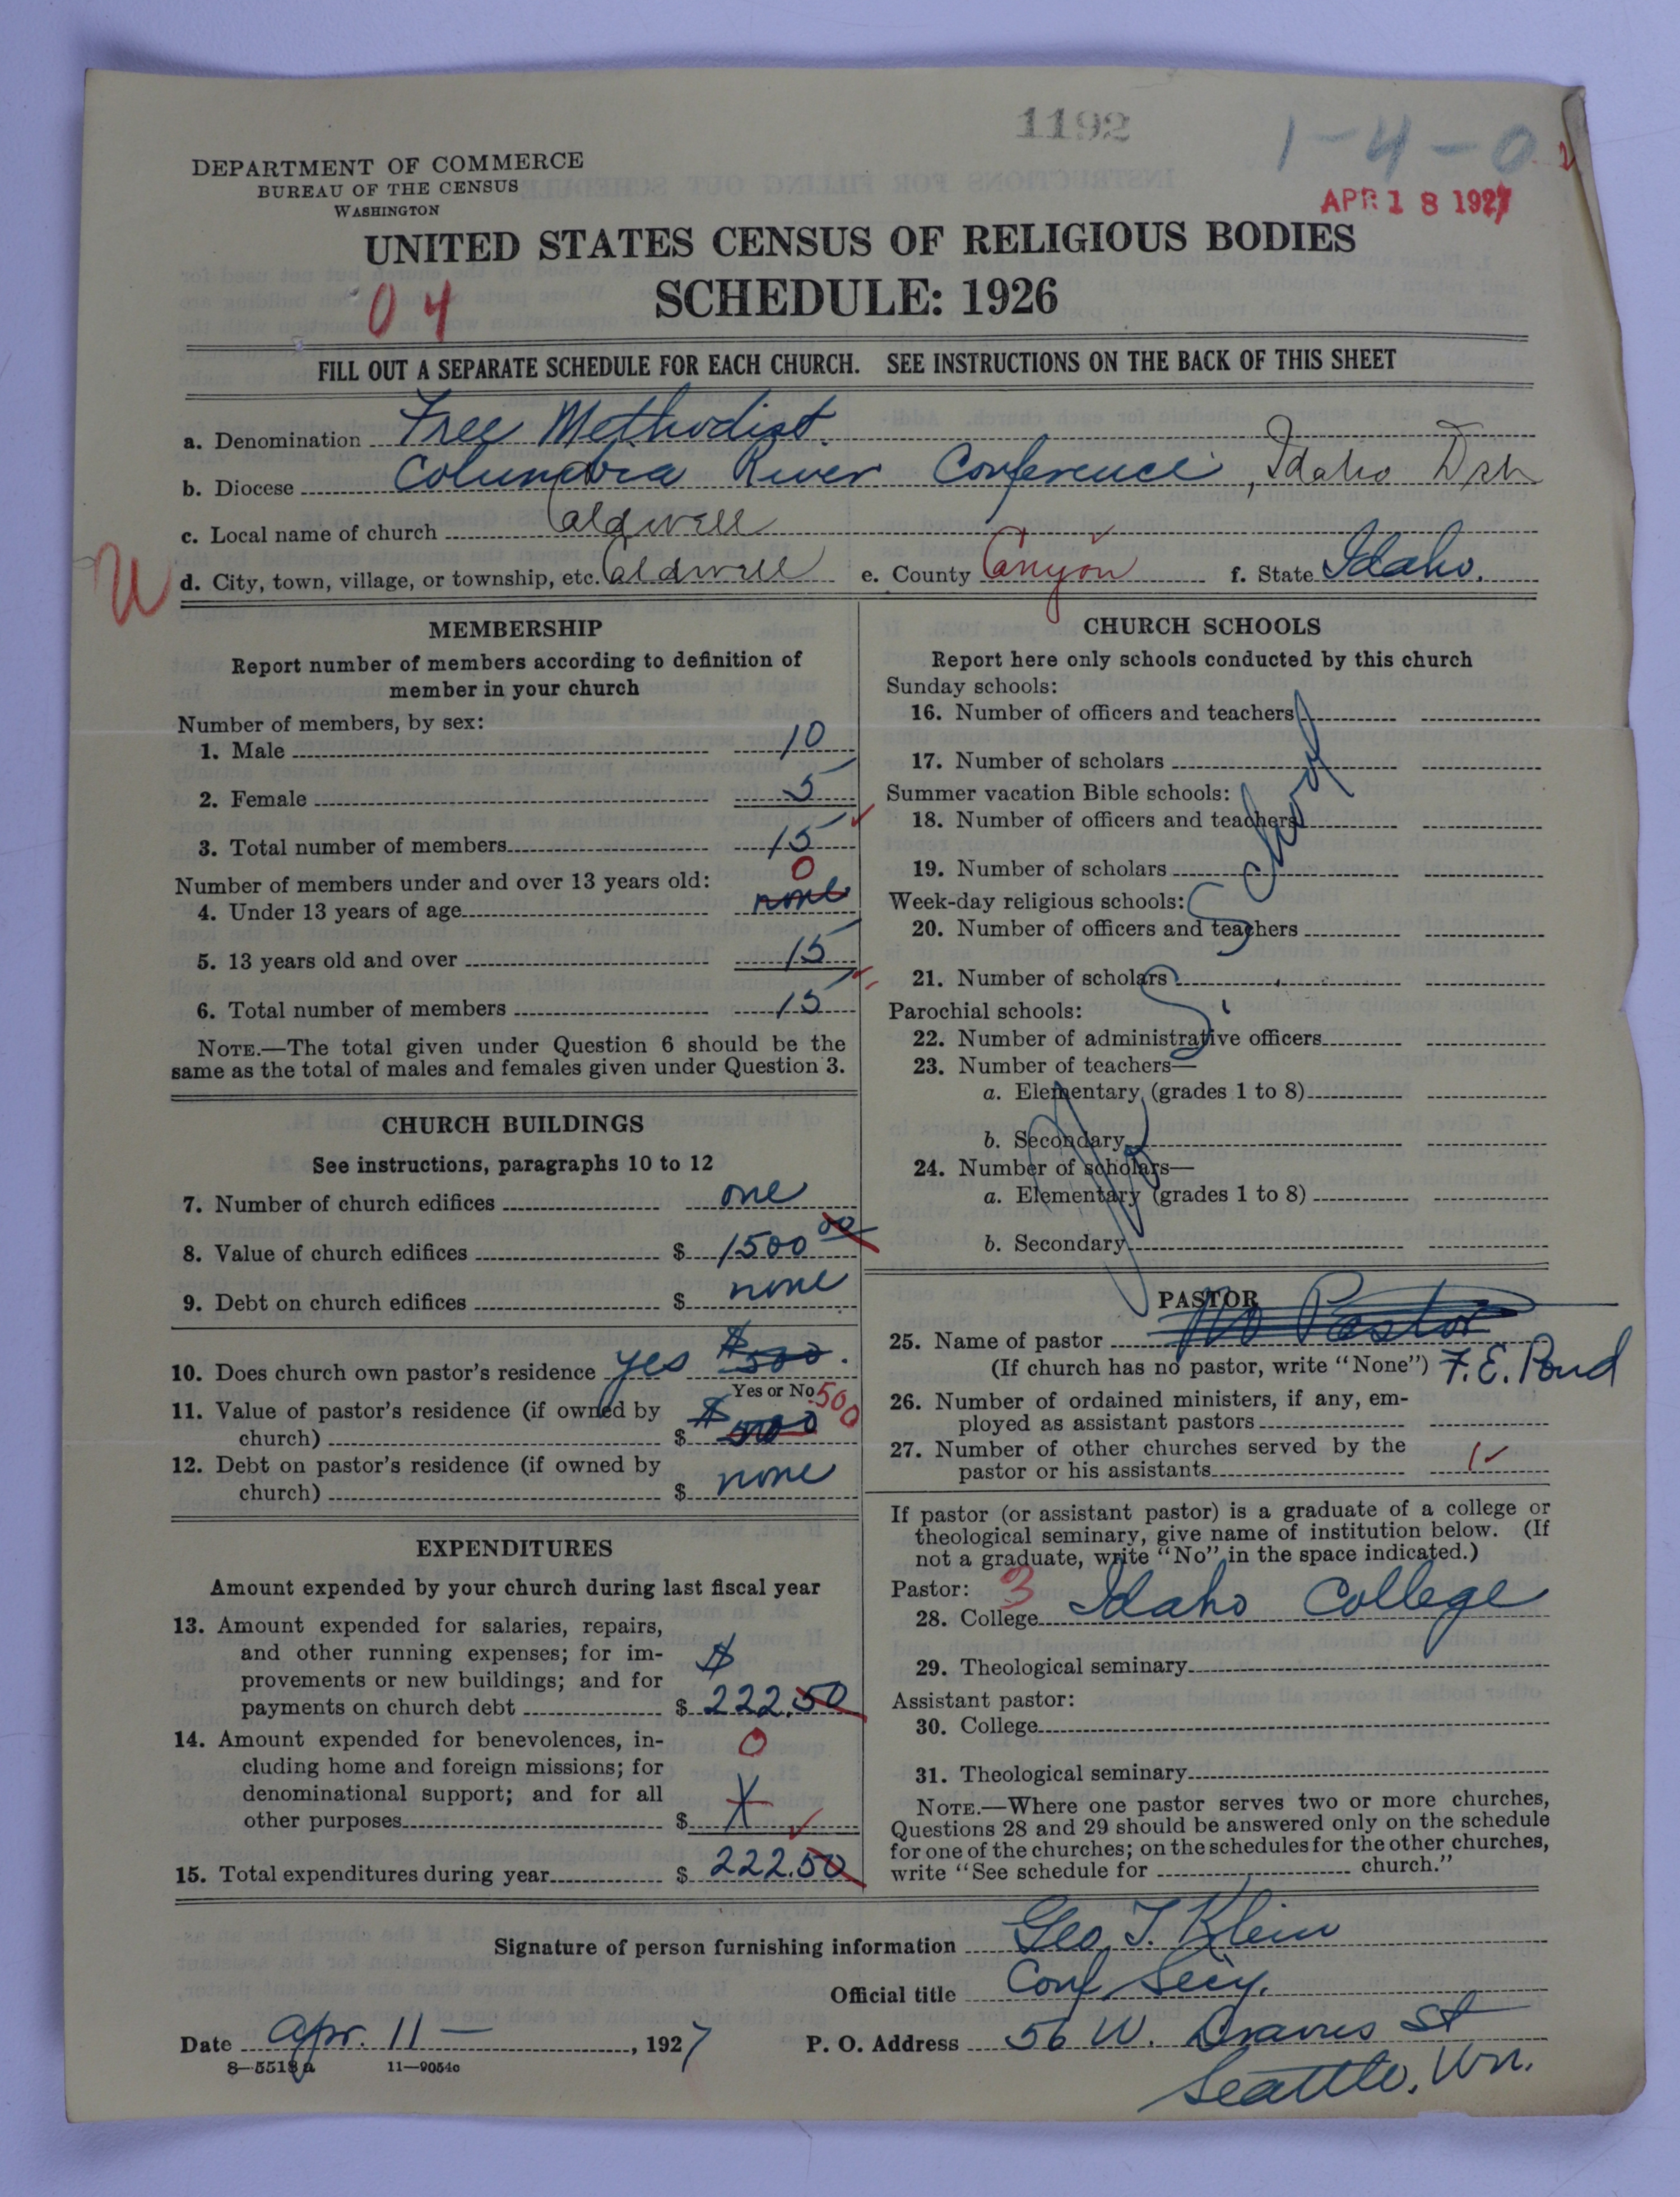 1192
1-4-0
DEPARTMENT OF COMMERCE
BUREAU OF THE CENSUS
WASHINGTON
APR 18 1927
UNITED STATES CENSUS OF RELIGIOUS BODIES
SCHEDULE: 1926
04
FILL OUT A SEPARATE SCHEDULE FOR EACH CHURCH. SEE INSTRUCTIONS ON THE BACK OF THIS SHEET
a. Denomination Free Methodist.
b. Diocese Columbia River Conference, Idaho Dist
c. Local name of church Caldwell
d. City, town, village, or township, etc. Caldwell e. County Canyon f. State Idaho.
MEMBERSHIP
Report number of members according to definition of
member in your church
Number of members, by sex:
1. Male 10
2. Female 5
3. Total number of members 15
0
Number of members under and over 13 years old:
4. Under 13 years of age none
5. 13 years old and over 15
6. Total number of members 15
NOTE.—The total given under Question 6 should be the
same as the total of males and females given under Question 3.
CHURCH BUILDINGS
See instructions, paragraphs 10 to 12
7. Number of church edifices one
8. Value of church edifices $ 1500 00
9. Debt on church edifices $ none
10. Does church own pastor's residence yes $500.
Yes or No
11. Value of pastor's residence (if owned by
church) $ $500 500
12. Debt on pastor's residence (if owned by
church) $ none
EXPENDITURES
Amount expended by your church during last fiscal year
13. Amount expended for salaries, repairs,
and other running expenses; for im-
provements or new buildings; and for
payments on church debt $ $ 222.50
14. Amount expended for benevolences, in-
cluding home and foreign missions; for
denominational support; and for all
other purposes $ 0
15. Total expenditures during year $ 222.50
CHURCH SCHOOLS
Report here only schools conducted by this church
Sunday schools:
16. Number of officers and teachers
17. Number of scholars
Summer vacation Bible schools:
18. Number of officers and teachers
19. Number of scholars
Week-day religious schools:
20. Number of officers and teachers
21. Number of scholars
Parochial schools:
22. Number of administrative officers
23. Number of teachers—
a. Elementary (grades 1 to 8)
b. Secondary
24. Number of scholars—
a. Elementary (grades 1 to 8)
b. Secondary
No S. School
PASTOR
25. Name of pastor No Pastor
(If church has no pastor, write "None") F. E. Pond
26. Number of ordained ministers, if any, em-
ployed as assistant pastors
27. Number of other churches served by the
pastor or his assistants 1
If pastor (or assistant pastor) is a graduate of a college or
theological seminary, give name of institution below. (If
not a graduate, write "No" in the space indicated.)
Pastor: 3
28. College Idaho College
29. Theological seminary
Assistant pastor:
30. College
31. Theological seminary
NOTE.—Where one pastor serves two or more churches,
Questions 28 and 29 should be answered only on the schedule
for one of the churches; on the schedules for the other churches,
write "See schedule for church."
Signature of person furnishing information Geo. T. Klein
Official title Conf Secy.
Date Apr. 11 —, 1927 P. O. Address 56 W. Dravus St
8—5518a 11—9054c
Seattle, Wn.